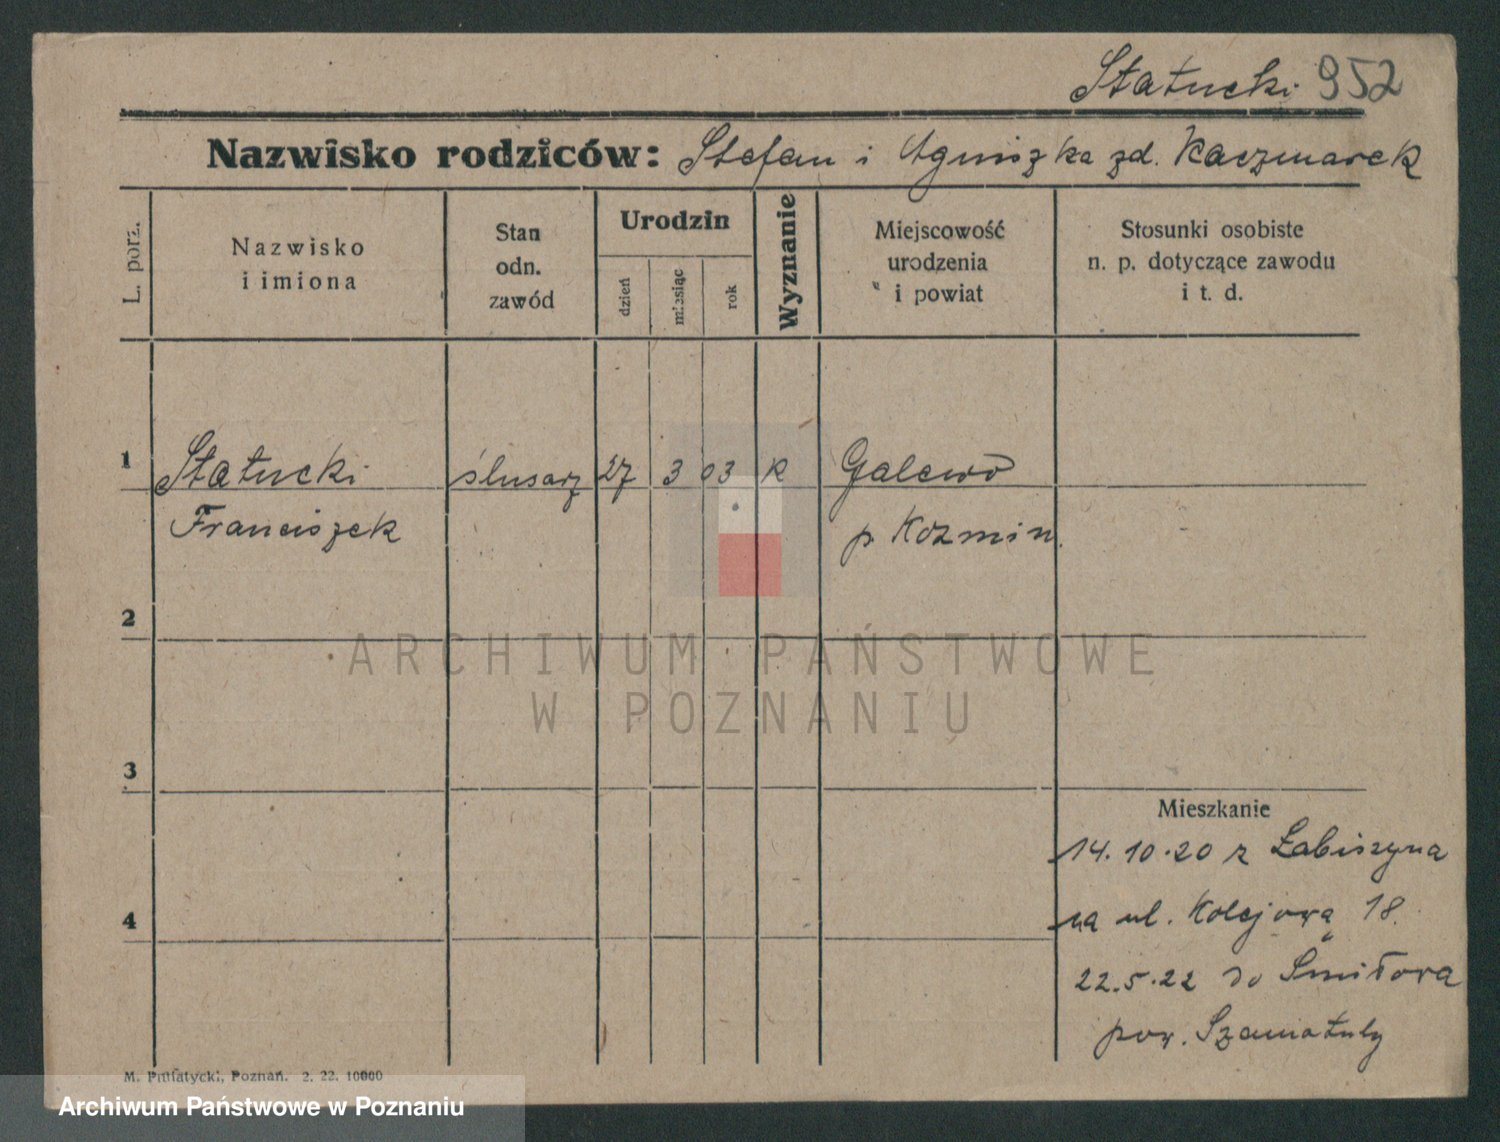 Statucki 952
Nazwisko rodziców: Stefan i Agniszka zd. Kaczmarek
L. porz.
Nazwisko
i imiona
Stan
odn.
zawód
Urodzin
dzień
miesiąc
rok
Wyznanie
Miejscowość
urodzenia
i powiat
Stosunki osobiste
n. p. dotyczące zawodu
i t. d.
1 Statucki ślusarz 27 3 03 K Galewo
Franciszek p Kozmin.
2
ARCHIWUM PAŃSTWOWE
W POZNANIU
3
Mieszkanie
14.10.20 z Łabiszyna
4 na ul. Kolejową 18.
22.5.22 do Śmiłowa
pow. Szamotuły
M. Putiatycki, Poznań. 2. 22. 10000
Archiwum Państwowe w Poznaniu